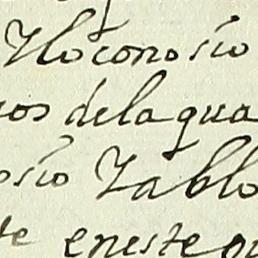 Yloconosio
ios delaqua
osio Yablo
te enesteou